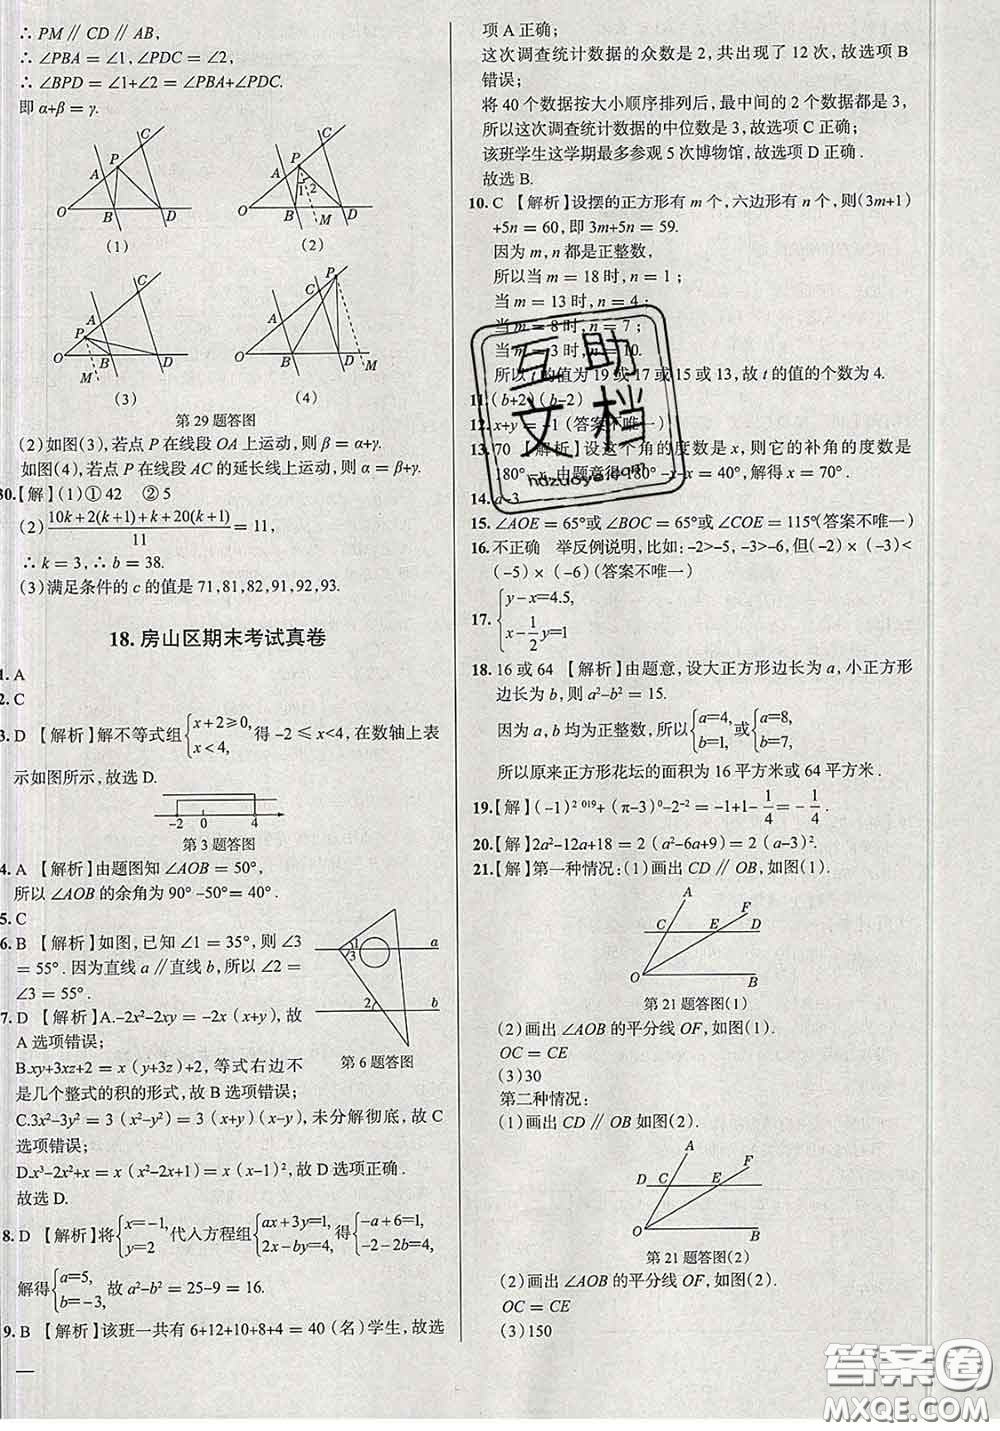 ∴ PM∥CD∥AB,
∴ ∠PBA=∠1,∠PDC=∠2,
∴ ∠BPD=∠1+∠2=∠PBA+∠PDC.
即 α+β=γ.
C
P
A
O
B
D
(1)
C
P
A
1
2
O
B
M
D
(2)
C
A
P
O
B
D
M
(3)
P
C
A
O
B
D
M
(4)
第 29 题答图
(2)如图(3),若点 P 在线段 OA 上运动,则 β=α+γ.
如图(4),若点 P 在线段 AC 的延长线上运动,则 α=β+γ.
30.【解】(1)① 42 ② 5
(2) (10k+2(k+1)+k+20(k+1))/11=11,
∴ k=3,∴ b=38.
(3)满足条件的 c 的值是 71,81,82,91,92,93.
18. 房山区期末考试真卷
1. A
2. C
3. D 【解析】解不等式组{x+2≥0, x<4, 得 -2≤x<4,在数轴上表
示如图所示,故选 D.
-2 0 4
第 3 题答图
4. A 【解析】由题图知 ∠AOB=50°,
所以 ∠AOB 的余角为 90°-50°=40°.
5. C
6. B 【解析】如图,已知 ∠1=35°,则 ∠3
=55°. 因为直线 a∥直线 b,所以 ∠2
=∠3=55°.
1
3
a
2
b
第 6 题答图
7. D 【解析】A.-2x²-2xy=-2x(x+y),故
A 选项错误;
B.xy+3xz+2=x(y+3z)+2,等式右边不
是几个整式的积的形式,故 B 选项错误;
C.3x²-3y²=3(x²-y²)=3(x+y)(x-y),未分解彻底,故 C
选项错误;
D.x³-2x²+x=x(x²-2x+1)=x(x-1)²,故 D 选项正确.
故选 D.
8. D 【解析】将{x=-1, y=2 代入方程组{ax+3y=1, 2x-by=4, 得{-a+6=1, -2-2b=4,
解得{a=5, b=-3, 故 a²-b²=25-9=16.
9. B 【解析】该班一共有 6+12+10+8+4=40(名)学生,故选
项 A 正确;
这次调查统计数据的众数是 2,共出现了 12 次,故选项 B
错误;
将 40 个数据按大小顺序排列后,最中间的 2 个数据都是 3,
所以这次调查统计数据的中位数是 3,故选项 C 正确;
该班学生这学期最多参观 5 次博物馆,故选项 D 正确.
故选 B.
10. C 【解析】设摆的正方形有 m 个,六边形有 n 个,则(3m+1)
+5n=60,即 3m+5n=59.
因为 m,n 都是正整数,
所以当 m=18 时,n=1;
当 m=13 时,n=4;
当 m=8 时,n=7;
当 m=3 时,n=10.
所以 t 的值为 19 或 17 或 15 或 13,故 t 的值的个数为 4.
11. (b+2)(b-2)
12. x+y=-1(答案不唯一)
13. 70 【解析】设这个角的度数是 x,则它的补角的度数是
180°-x,由题意得 180°-x-x=40°,解得 x=70°.
14. a-3
15. ∠AOE=65°或∠BOC=65°或∠COE=115°(答案不唯一)
16. 不正确 举反例说明,比如:-2>-5,-3>-6,但(-2)×(-3)<
(-5)×(-6)(答案不唯一)
17. {y-x=4.5, x-1/2y=1
18. 16 或 64 【解析】由题意,设大正方形边长为 a,小正方形
边长为 b,则 a²-b²=15.
因为 a,b 均为正整数,所以{a=4, b=1, 或{a=8, b=7,
所以原来正方形花坛的面积为 16 平方米或 64 平方米.
19.【解】(-1)²⁰¹⁹+(π-3)⁰-2⁻²=-1+1-1/4=-1/4.
20.【解】2a²-12a+18=2(a²-6a+9)=2(a-3)².
21.【解】第一种情况:(1)画出 CD∥OB,如图(1).
A
F
C
E
D
O
B
第 21 题答图(1)
(2)画出 ∠AOB 的平分线 OF,如图(1).
OC=CE
(3)30
第二种情况:
(1)画出 CD∥OB 如图(2).
A
F
D
C
E
O
B
第 21 题答图(2)
(2)画出 ∠AOB 的平分线 OF,如图(2).
OC=CE
(3)150
互助
文档
hdzuoye.com
答案圈
MXQE.COM